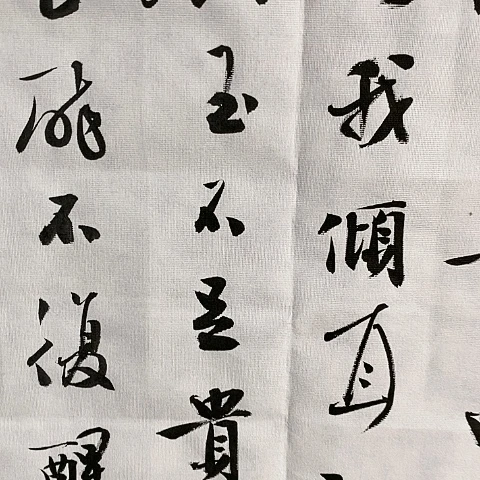 我傾耳
玉不足貴
醉不復醒